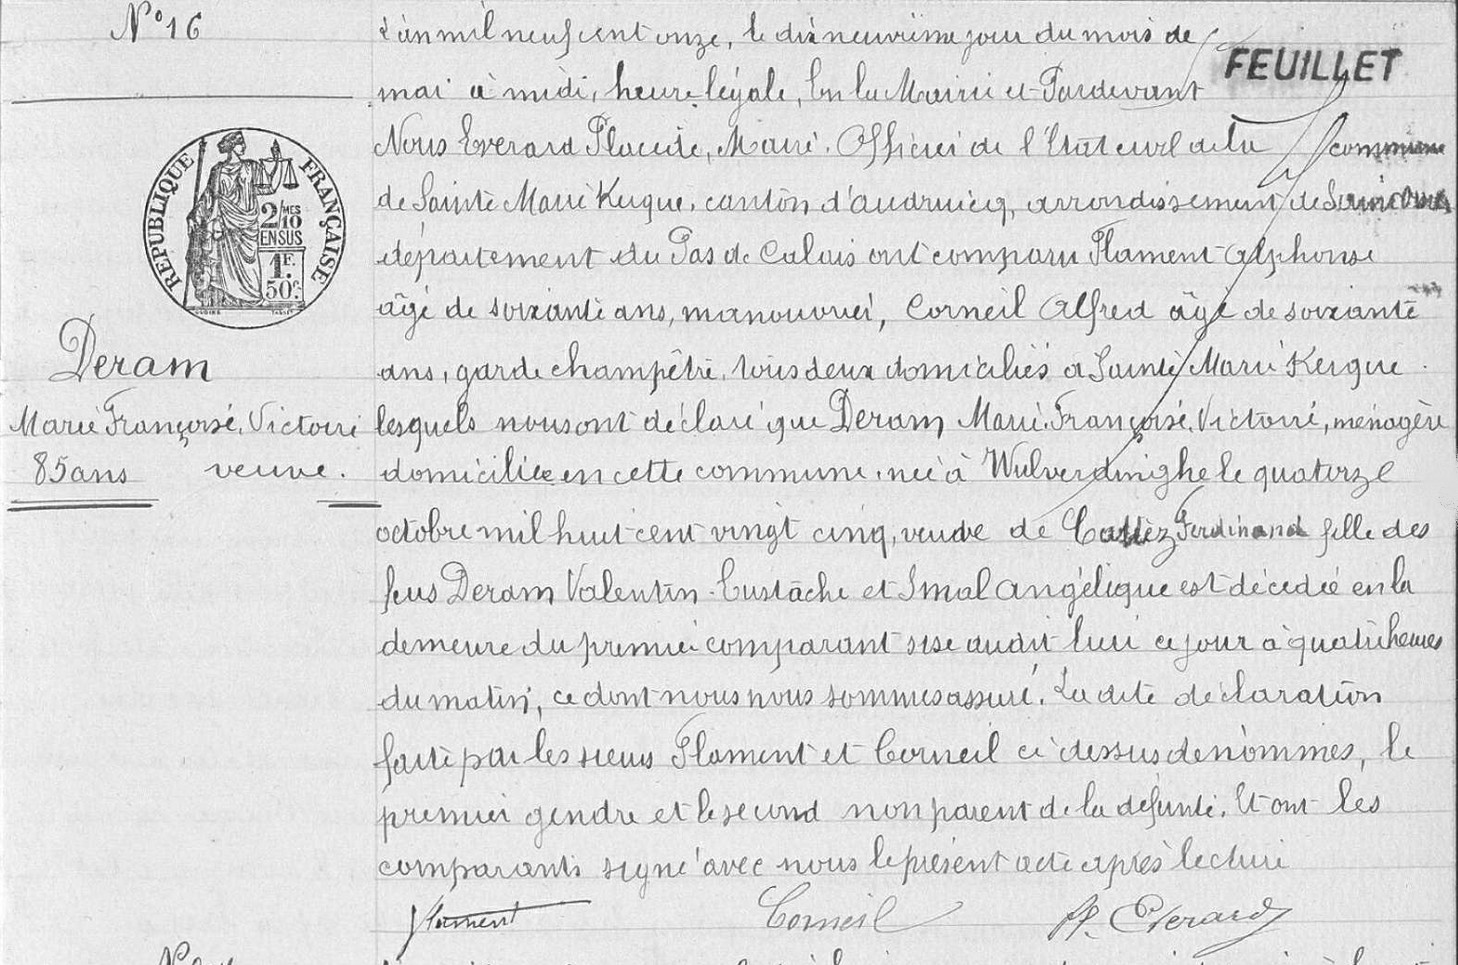 N° 16
L'an mil neuf cent onze, le dix neuvième jour du mois de
FEUILLET
mai à midi, heure légale, En la Mairie et Pardevant
Nous Everard Placide, Maire, Officier de l'Etat civil de la commune
de Sainte Marie Kerque, canton d'audruicq, arrondissement de Saint Omer
département du Pas de Calais ont comparu Flament Alphonse
âgé de soixante ans, manouvrier, Corneil Alfred âgé de soixante
ans, garde champêtre, tous deux domiciliés à Sainte Marie Kerque.
lesquels nous ont déclaré que Deram Marie, Françoise, Victoire, ménagère
domiciliée en cette commune, née à Wulverdinghe le quatorze
octobre mil huit cent vingt cinq, veuve de Ferdinand fille des
feus Deram Valentin Eustache et Smal Angélique est décédée en la
demeure du premier comparant sise audit lieu ce jour à quatre heures
du matin, ce dont nous nous sommes assuré. La dite déclaration
faite par les sieurs Flament et Corneil ci dessus denommés, le
premier gendre et le second non parent de la défunte. Et ont les
comparants signé avec nous le présent acte après lecture
Flament Corneil Everard
RÉPUBLIQUE FRANÇAISE
2/10 MES
EN SUS
1F.
50c.
Deram
Marie Françoise, Victoire
85 ans veuve.